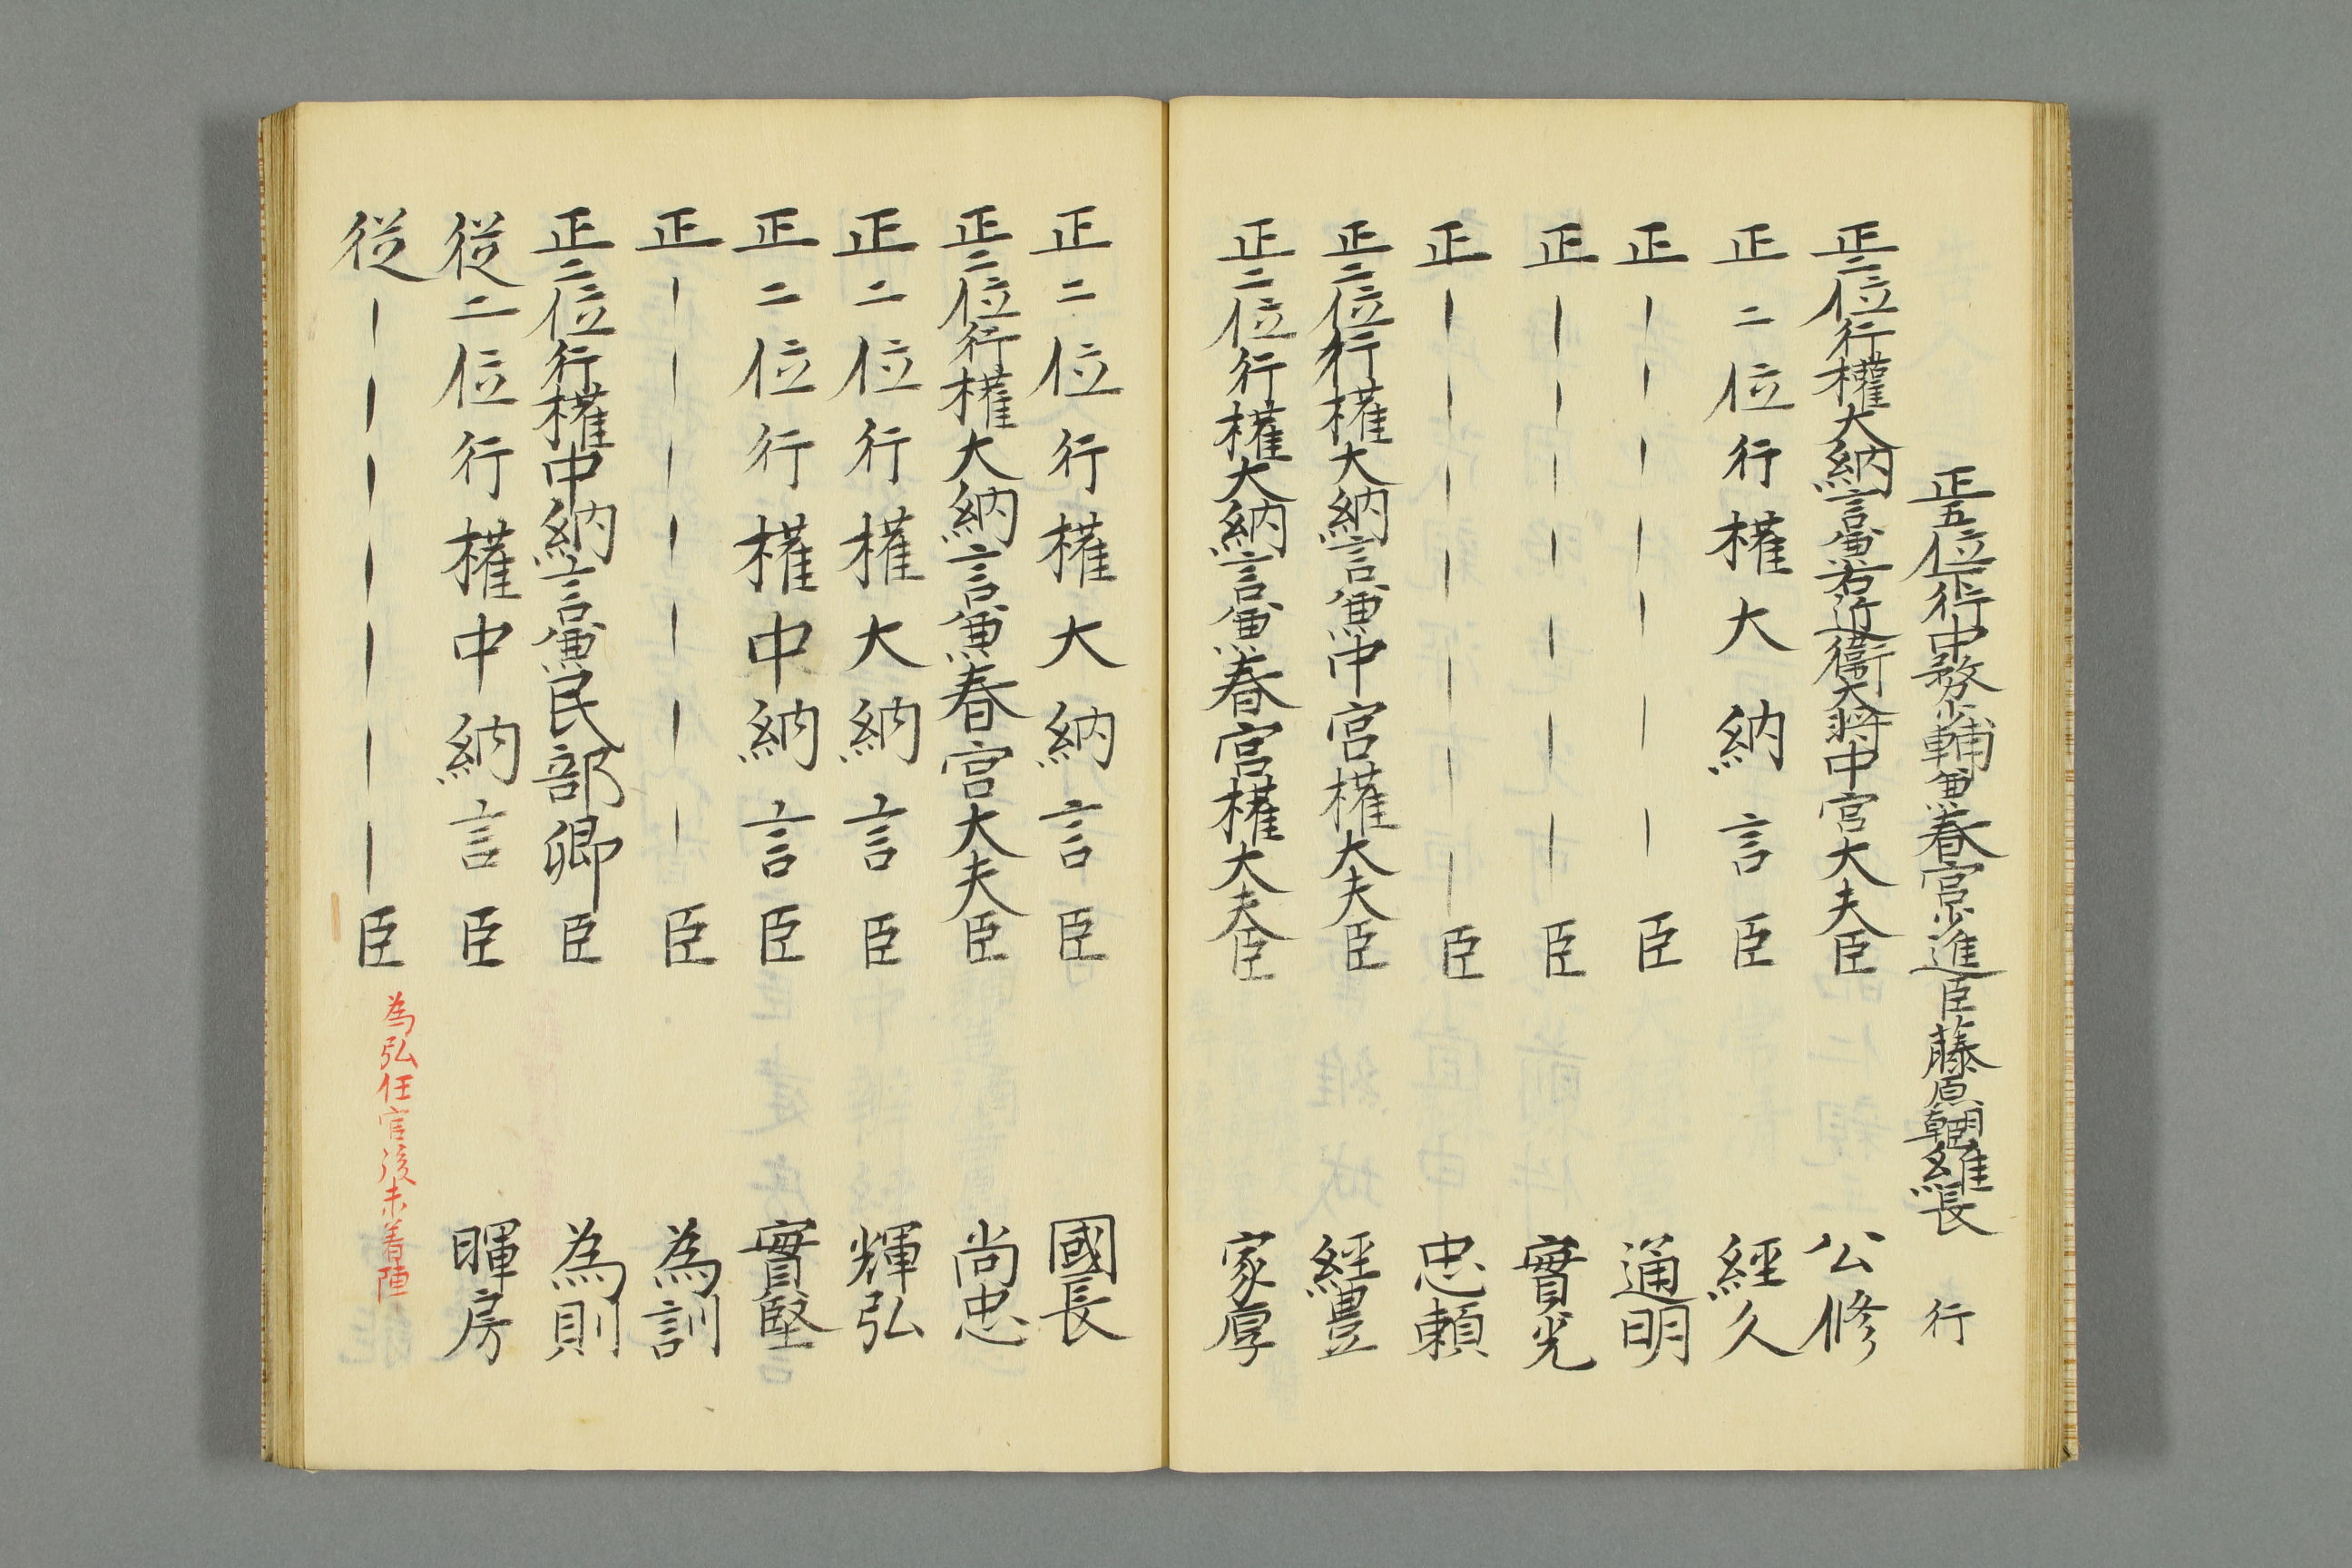 正五位下行中務少輔兼春宮少進臣藤原朝臣維長 行
正二位行權大納言兼右近衛大將中宮大夫臣 公修
正二位行權大納言臣 經久
正――――――臣 通明
正――――――臣 實光
正――――――臣 忠頼
正二位行權大納言兼中宮權大夫臣 經豊
正二位行權大納言兼春宮權大夫臣 家厚
正二位行權大納言臣 國長
正二位行權大納言兼春宮大夫臣 尚忠
正二位行權大納言臣 輝弘
正二位行權中納言臣 實堅
正――――――臣 為訓
正二位行權中納言兼民部卿臣 為則
従二位行權中納言臣 暉房
従――――――臣 為弘任官後未着陣